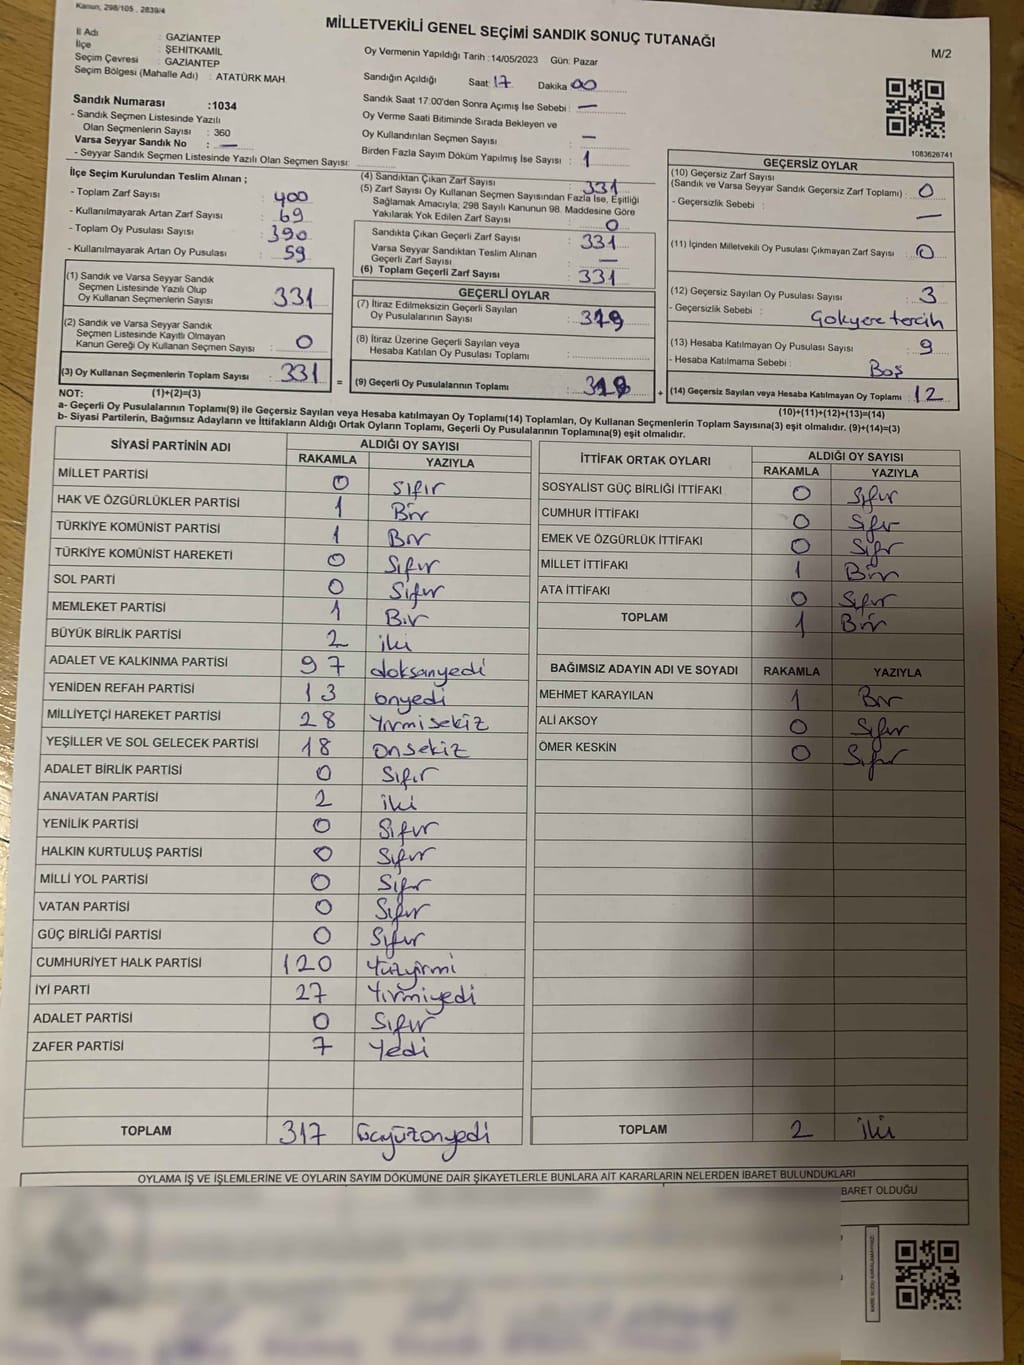 Kanun, 298/105 , 2839/4
MİLLETVEKİLİ GENEL SEÇİMİ SANDIK SONUÇ TUTANAĞI
M/2
İl Adı : GAZİANTEP
İlçe : ŞEHİTKAMİL
Seçim Çevresi : GAZİANTEP
Seçim Bölgesi (Mahalle Adı) : ATATÜRK MAH.
Sandık Numarası :1034
- Sandık Seçmen Listesinde Yazılı
Olan Seçmenlerin Sayısı : 360
Varsa Seyyar Sandık No : —
- Seyyar Sandık Seçmen Listesinde Yazılı Olan Seçmen Sayısı:
Oy Vermenin Yapıldığı Tarih :14/05/2023 Gün: Pazar
Sandığın Açıldığı Saat 17 Dakika 00
Sandık Saat 17:00'den Sonra Açımış İse Sebebi : —
Oy Verme Saati Bitiminde Sırada Bekleyen ve
Oy Kullandırılan Seçmen Sayısı : —
Birden Fazla Sayım Döküm Yapılmış İse Sayısı : 1
1083626741
İlçe Seçim Kurulundan Teslim Alınan ;
- Toplam Zarf Sayısı : 400
- Kullanılmayarak Artan Zarf Sayısı : 69
- Toplam Oy Pusulası Sayısı : 390
- Kullanılmayarak Artan Oy Pusulası : 59
(1) Sandık ve Varsa Seyyar Sandık
Seçmen Listesinde Yazılı Olup
Oy Kullanan Seçmenlerin Sayısı : 331
(2) Sandık ve Varsa Seyyar Sandık
Seçmen Listesinde Kayıtlı Olmayan
Kanun Gereği Oy Kullanan Seçmen Sayısı : 0
(3) Oy Kullanan Seçmenlerin Toplam Sayısı : 331 =
(4) Sandıktan Çıkan Zarf Sayısı : 331
(5) Zarf Sayısı Oy Kullanan Seçmen Sayısından Fazla İse, Eşitliği
Sağlamak Amacıyla; 298 Sayılı Kanunun 98. Maddesine Göre
Yakılarak Yok Edilen Zarf Sayısı : 0
Sandıkta Çıkan Geçerli Zarf Sayısı : 331
Varsa Seyyar Sandıktan Teslim Alınan
Geçerli Zarf Sayısı : —
(6) Toplam Geçerli Zarf Sayısı : 331
GEÇERLİ OYLAR
(7) İtiraz Edilmeksizin Geçerli Sayılan
Oy Pusulalarının Sayısı : 319
(8) İtiraz Üzerine Geçerli Sayılan veya
Hesaba Katılan Oy Pusulası Toplamı :
(9) Geçerli Oy Pusulalarının Toplamı : +
GEÇERSİZ OYLAR
(10) Geçersiz Zarf Sayısı
(Sandık ve Varsa Seyyar Sandık Geçersiz Zarf Toplamı) : 0
- Geçersizlik Sebebi : —
(11) İçinden Milletvekili Oy Pusulası Çıkmayan Zarf Sayısı : 0
(12) Geçersiz Sayılan Oy Pusulası Sayısı : 3
- Geçersizlik Sebebi : Çokyere tercih
(13) Hesaba Katılmayan Oy Pusulası Sayısı : 9
- Hesaba Katılmama Sebebi : Boş
(14) Geçersiz Sayılan veya Hesaba Katılmayan Oy Toplamı : 12
NOT: (1)+(2)=(3)
(10)+(11)+(12)+(13)=(14)
a- Geçerli Oy Pusulalarının Toplamı(9) ile Geçersiz Sayılan veya Hesaba katılmayan Oy Toplamı(14) Toplamları, Oy Kullanan Seçmenlerin Toplam Sayısına(3) eşit olmalıdır. (9)+(14)=(3)
b- Siyasi Partilerin, Bağımsız Adayların ve İttifakların Aldığı Ortak Oyların Toplamı, Geçerli Oy Pusulalarının Toplamına(9) eşit olmalıdır.
SİYASİ PARTİNİN ADI
ALDIĞI OY SAYISI
RAKAMLA YAZIYLA
MİLLET PARTİSİ 0 Sıfır
HAK VE ÖZGÜRLÜKLER PARTİSİ 1 Bir
TÜRKİYE KOMÜNİST PARTİSİ 1 Bir
TÜRKİYE KOMÜNİST HAREKETİ 0 Sıfır
SOL PARTİ 0 Sıfır
MEMLEKET PARTİSİ 1 Bir
BÜYÜK BİRLİK PARTİSİ 2 iki
ADALET VE KALKINMA PARTİSİ 97 doksanyedi
YENİDEN REFAH PARTİSİ 13 onyedi
MİLLİYETÇİ HAREKET PARTİSİ 28 Yirmisekiz
YEŞİLLER VE SOL GELECEK PARTİSİ 18 onsekiz
ADALET BİRLİK PARTİSİ 0 Sıfır
ANAVATAN PARTİSİ 2 iki
YENİLİK PARTİSİ 0 Sıfır
HALKIN KURTULUŞ PARTİSİ 0 Sıfır
MİLLİ YOL PARTİSİ 0 Sıfır
VATAN PARTİSİ 0 Sıfır
GÜÇ BİRLİĞİ PARTİSİ 0 Sıfır
CUMHURİYET HALK PARTİSİ 120 Yüzyirmi
İYİ PARTİ 27 Yirmiyedi
ADALET PARTİSİ 0 Sıfır
ZAFER PARTİSİ 7 Yedi
TOPLAM 317 Üçyüzonyedi
İTTİFAK ORTAK OYLARI
ALDIĞI OY SAYISI
RAKAMLA YAZIYLA
SOSYALİST GÜÇ BİRLİĞİ İTTİFAKI 0 Sıfır
CUMHUR İTTİFAKI 0 Sıfır
EMEK VE ÖZGÜRLÜK İTTİFAKI 0 Sıfır
MİLLET İTTİFAKI 1 Bir
ATA İTTİFAKI 0 Sıfır
TOPLAM 1 Bir
BAĞIMSIZ ADAYIN ADI VE SOYADI RAKAMLA YAZIYLA
MEHMET KARAYILAN 1 Bir
ALİ AKSOY 0 Sıfır
ÖMER KESKİN 0 Sıfır
TOPLAM 2 iki
OYLAMA İŞ VE İŞLEMLERİNE VE OYLARIN SAYIM DÖKÜMÜNE DAİR ŞİKAYETLERLE BUNLARA AİT KARARLARIN NELERDEN İBARET BULUNDUKLARI
BARET OLDUĞU